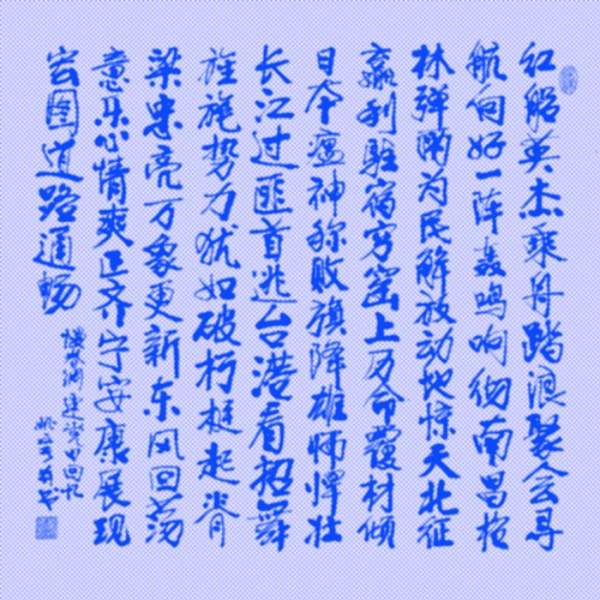 红船英杰乘舟踏浪聚会寻
航向好一阵轰鸣响彻南昌枪
林弹雨为民解放动地惊天北征
赢利驻宿穷窑上万命覆材倾
日本瘟神称败旗降雄师悍壮
长江过匪首逃台港看招舞
旌旄势力犹如破朽梃起脊
梁忠亮万象更新东风回荡
意乐心情爽正齐宁安康展现
宏图道路通畅